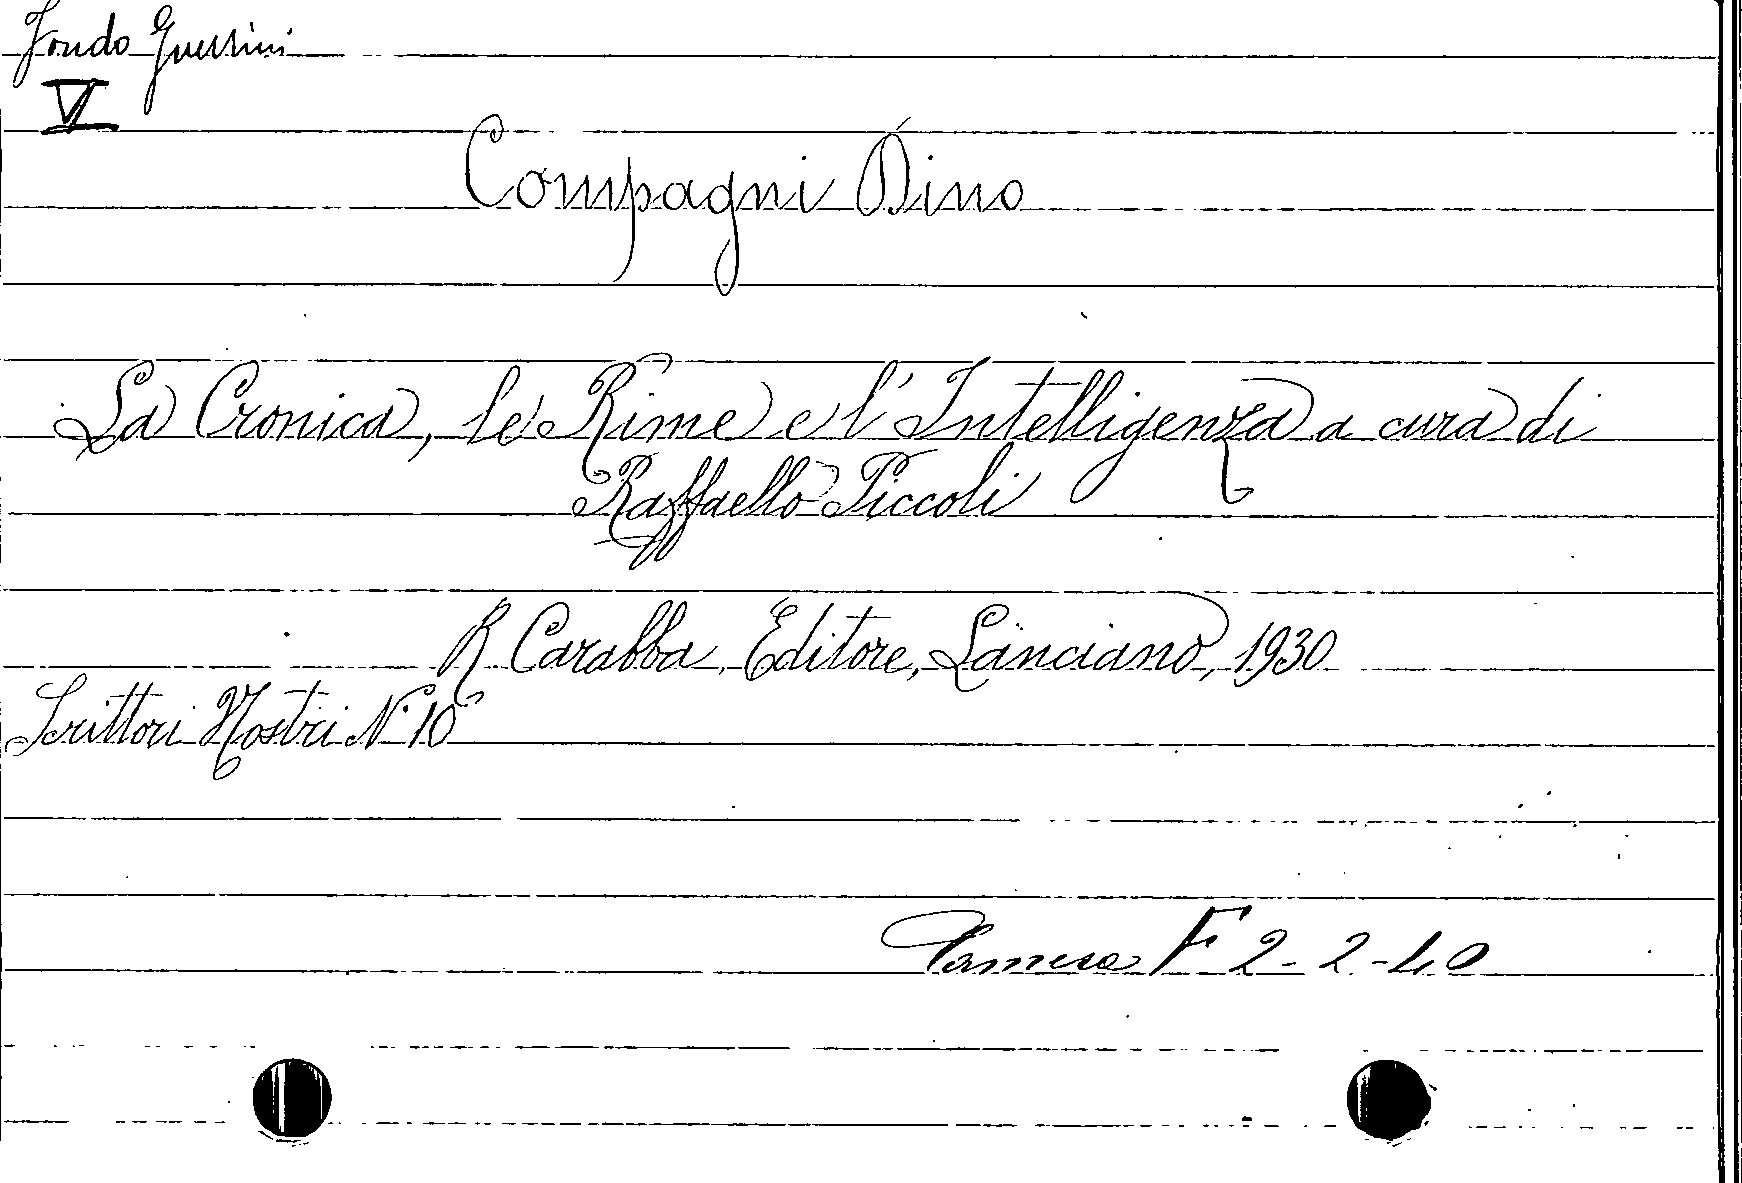 Fondo Guerrini
VI
Compagni Dino
La Cronica, le Rime e l'Intelligenza a cura di
Raffaello Piccoli
R Carabba, Editore, Lanciano, 1930
Scrittori Nostri N. 10
F 2-2-40